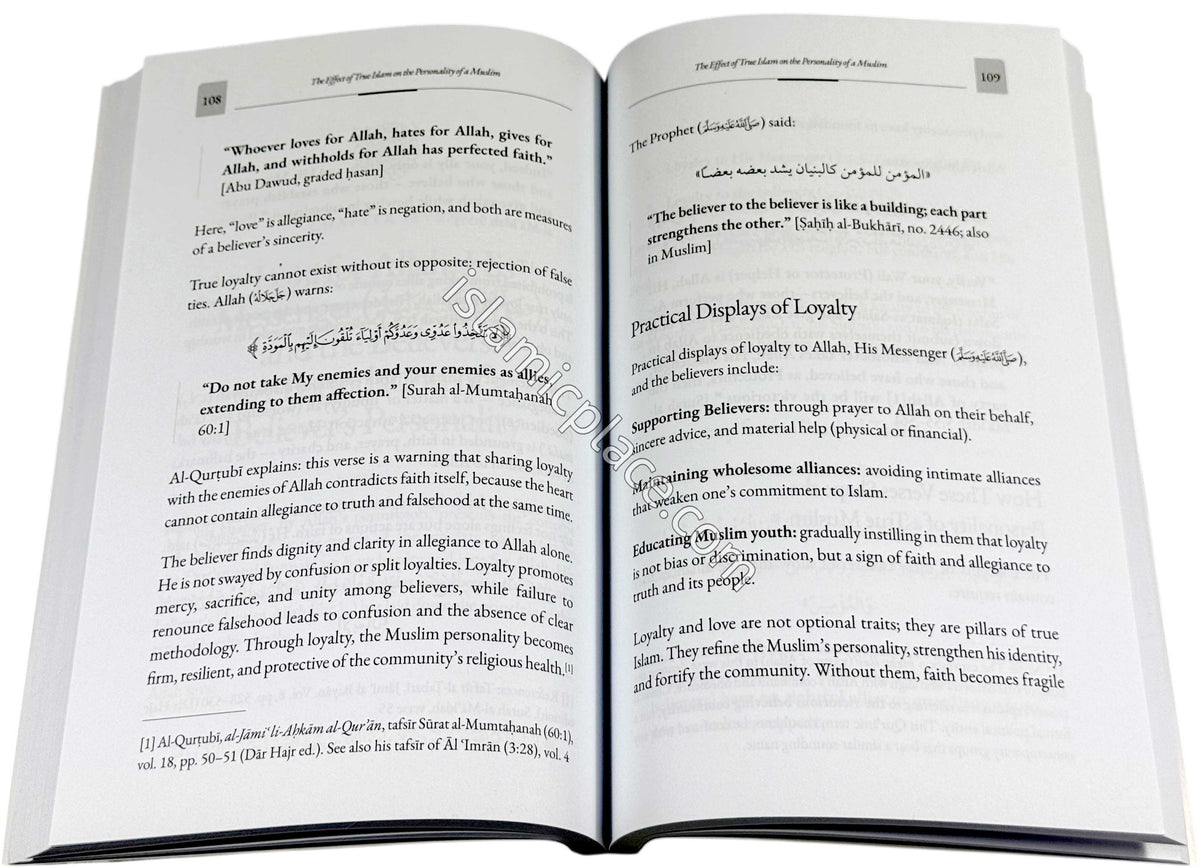 108
The Effect of True Islam on the Personality of a Muslim
“Whoever loves for Allah, hates for Allah, gives for
Allah, and withholds for Allah has perfected faith.”
[Abu Dawud, graded ḥasan]
Here, “love” is allegiance, “hate” is negation, and both are measures
of a believer’s sincerity.
True loyalty cannot exist without its opposite: rejection of false
ties. Allah (جل جلاله) warns:
﴿لَا تَتَّخِذُوا عَدُوِّي وَعَدُوَّكُمْ أَوْلِيَاءَ تُلْقُونَ إِلَيْهِم بِالْمَوَدَّةِ﴾
“Do not take My enemies and your enemies as allies,
extending to them affection.” [Surah al-Mumtaḥanah
60:1]
Al-Qurṭubī explains: this verse is a warning that sharing loyalty
with the enemies of Allah contradicts faith itself, because the heart
cannot contain allegiance to truth and falsehood at the same time.
The believer finds dignity and clarity in allegiance to Allah alone.
He is not swayed by confusion or split loyalties. Loyalty promotes
mercy, sacrifice, and unity among believers, while failure to
renounce falsehood leads to confusion and the absence of clear
methodology. Through loyalty, the Muslim personality becomes
firm, resilient, and protective of the community’s religious health.[1]
[1] Al-Qurṭubī, al-Jāmiʿ li-Aḥkām al-Qur’ān, tafsīr Sūrat al-Mumtaḥanah (60:1),
vol. 18, pp. 50–51 (Dār Hajr ed.). See also his tafsīr of Āl ʿImrān (3:28), vol. 4
The Effect of True Islam on the Personality of a Muslim
109
The Prophet (صلى الله عليه وسلم) said:
«المؤمن للمؤمن كالبنيان يشد بعضه بعضا»
“The believer to the believer is like a building; each part
strengthens the other.” [Ṣaḥīḥ al-Bukhārī, no. 2446; also
in Muslim]
Practical Displays of Loyalty
Practical displays of loyalty to Allah, His Messenger (صلى الله عليه وسلم),
and the believers include:
Supporting Believers: through prayer to Allah on their behalf,
sincere advice, and material help (physical or financial).
Maintaining wholesome alliances: avoiding intimate alliances
that weaken one’s commitment to Islam.
Educating Muslim youth: gradually instilling in them that loyalty
is not bias or discrimination, but a sign of faith and allegiance to
truth and its people.
Loyalty and love are not optional traits; they are pillars of true
Islam. They refine the Muslim’s personality, strengthen his identity,
and fortify the community. Without them, faith becomes fragile
islamicplace.com